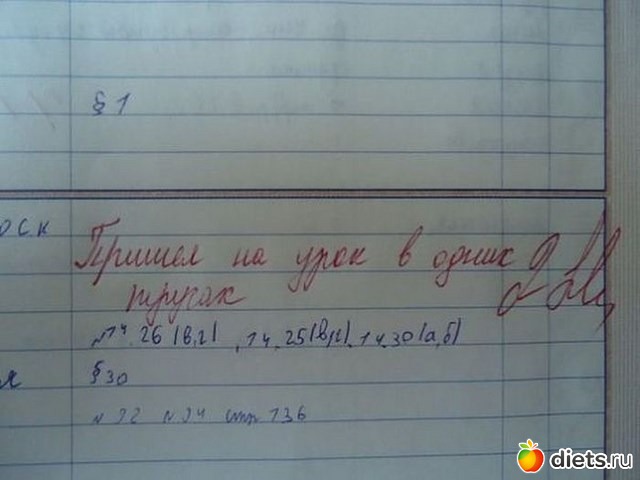 § 1
оск
Пришел на урок в одних 2
трусах
№14.26 (в,г), 14.25(в,г), 14.30(а,б)
я
§ 30
№92 №94 стр 136
diets.ru